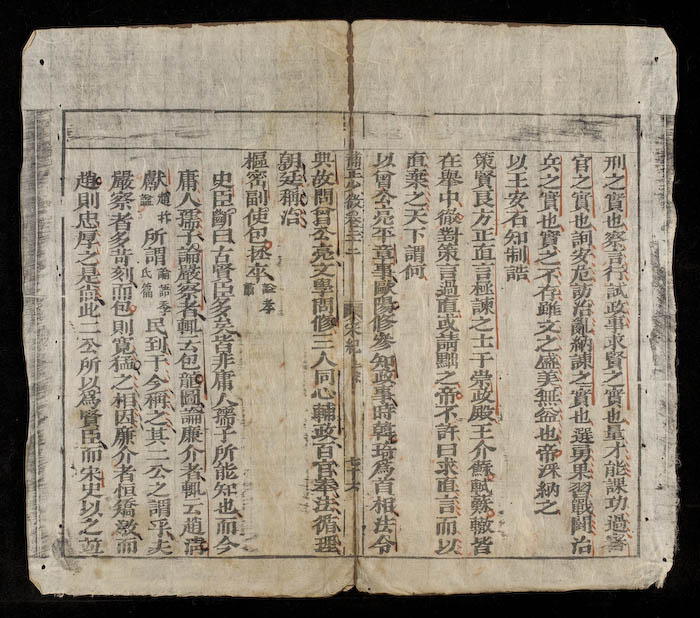 刑之實也察言行試政事求賢之實也量才能課功過審
官之實也詢安危訪治亂納諫之實也選勇果習戰鬪治
兵之實也實之不存雖文之盛美無益也帝深納之
以王安石知制誥
策賢良方正直言極諫之士于崇政殿王介蘇軾蘇轍皆
在舉中轍對策言過直或請黜之帝不許曰求直言而以
直棄之天下謂何
以曾公亮平章事歐陽修參知政事時韓琦爲首相法令
典故問曾公亮文學問修三人同心輔政百官奉法循理
朝廷稱治
樞密副使包拯卒 諡孝肅
史臣斷曰古賢臣多矣皆非庸人孺子所能知也而今
庸人孺子論嚴察者輒云包龍圖論廉介者輒云趙清
獻 趙抃諡 所謂 論語季氏篇 民到于今稱之其二公之謂乎夫
嚴察者多苛刻而包則寬猛之相因廉介者恒矯激而
趙則忠厚之是尙此二公所以爲賢臣而宋史以之並